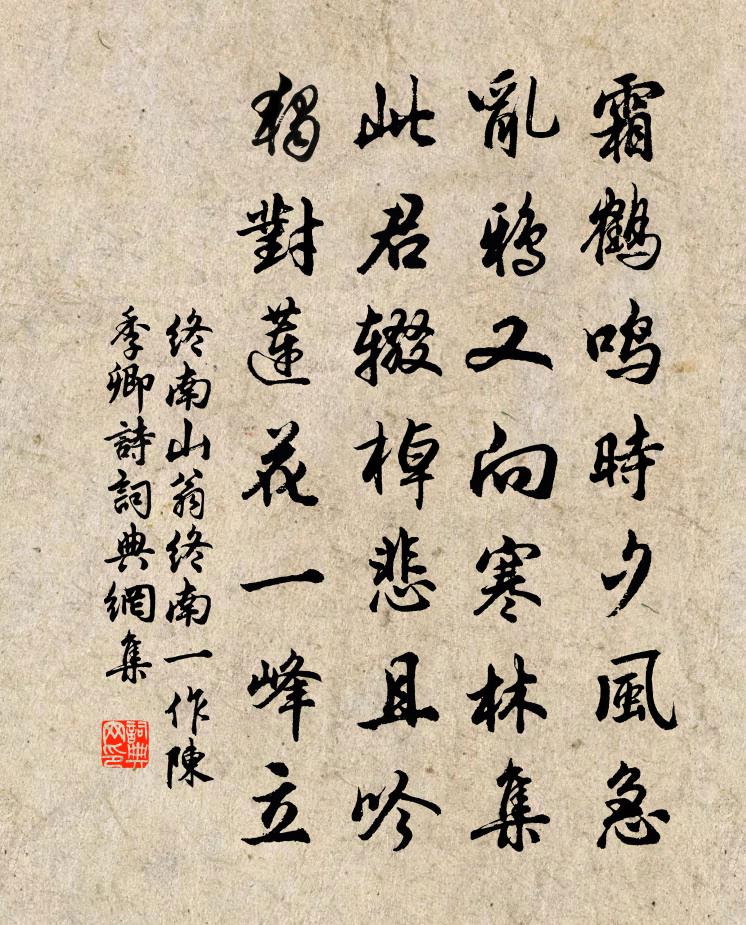 霜鶴鳴時夕風急
亂鴉又向寒林集
此君輟棹悲且吟
獨對蓮花一峰立
終南山翁終南一作陳
季卿詩詞典網集
詞典网印